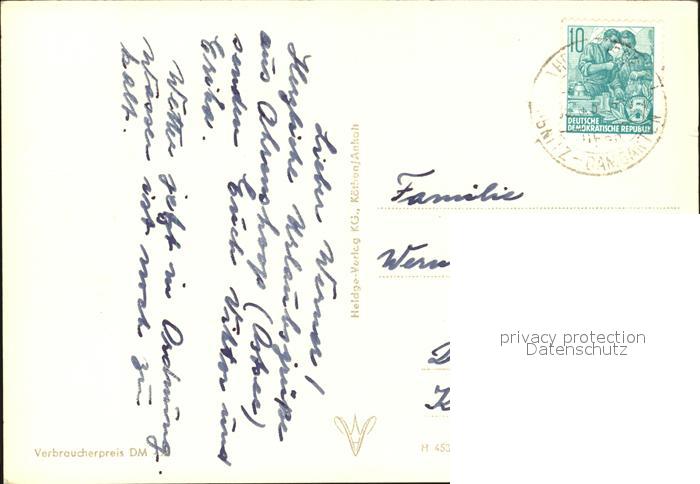 Lieber Werner!
Herzliche Urlaubsgrüße
aus Ahrenshoop (Ostsee)
senden Euch Viktor und
Erika.
Wetter jetzt in Ordnung.
Wasser ist noch zu
kalt.
Heldge-Verlag KG., Köthen/Anhalt
Verbraucherpreis DM
H 453
10
DEUTSCHE
DEMOKRATISCHE REPUBLIK
5
NITZ-DAMGARTEN
Familie
Wern
D
K
privacy protection
Datenschutz